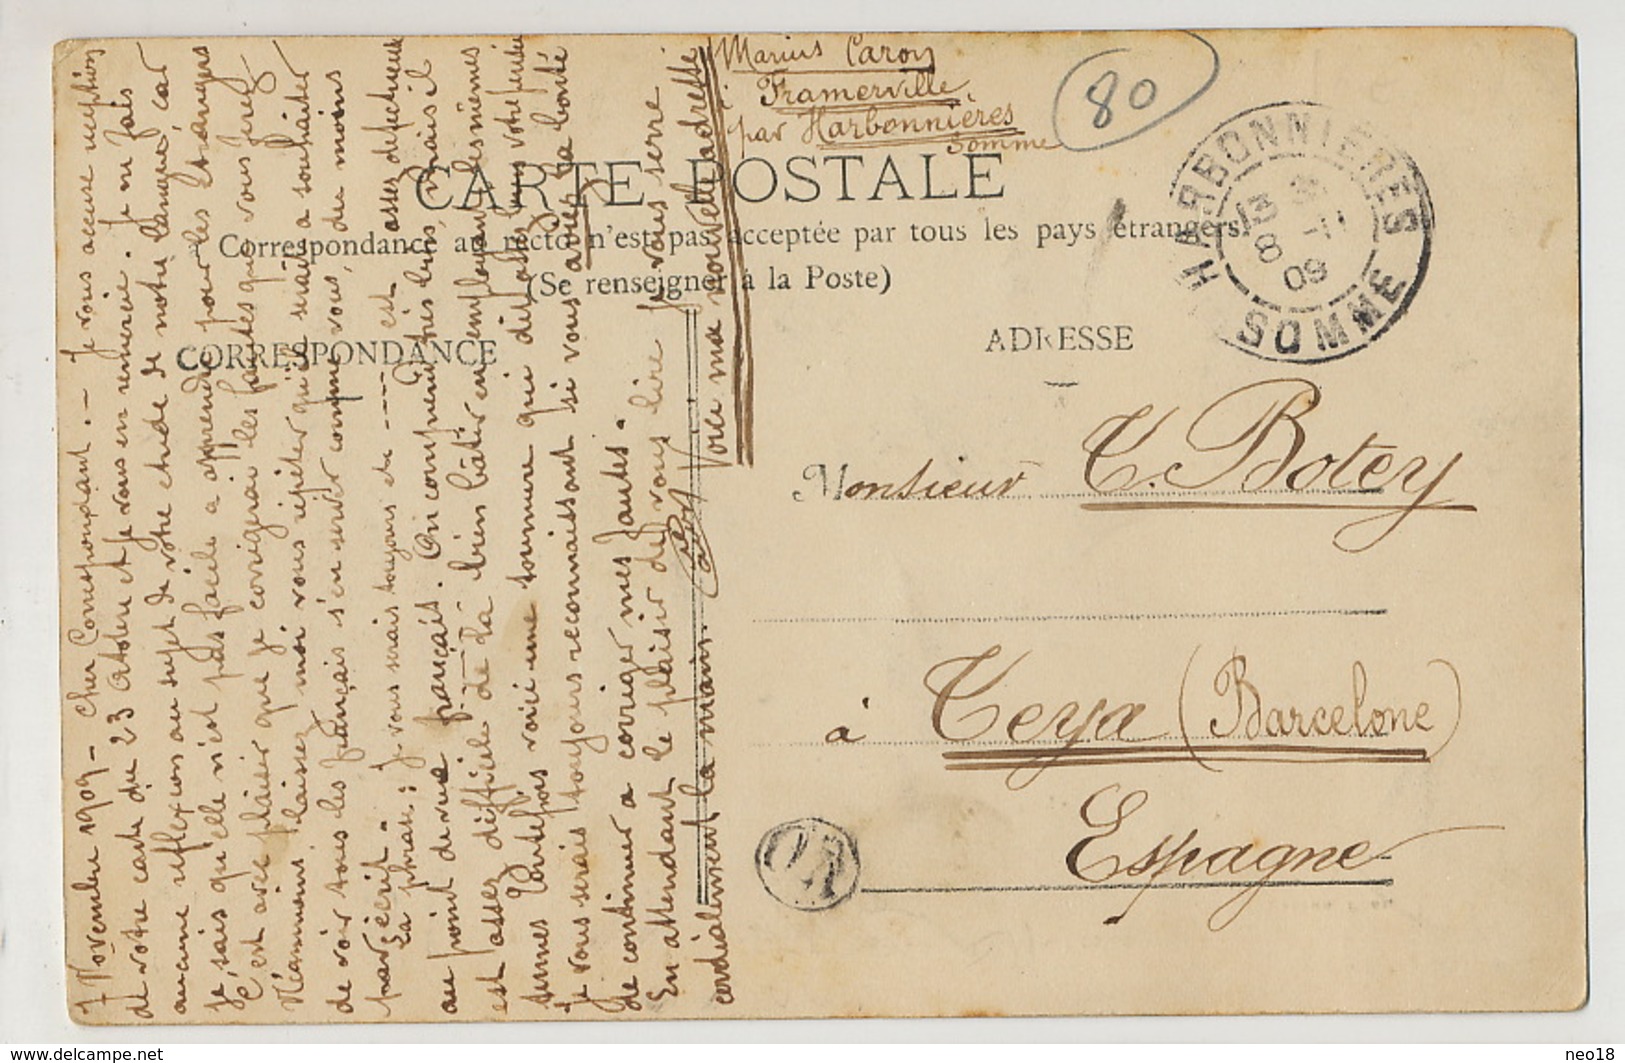 Marius Caron
à Framerville,
par Harbonnières
Somme
80
CARTE POSTALE
Correspondance au recto n'est pas acceptée par tous les pays étrangers.
(Se renseigner à la Poste)
CORRESPONDANCE
ADRESSE
HARBONNIERES
8 11
09
SOMME
Monsieur T. Botey
à Teya (Barcelone)
Espagne
OR
7 Novembre 1909 - Cher Correspondant. - Je vous accuse réception
de votre carte du 23 Octobre et je vous en remercie. Je ne fais
aucune réflexion au sujet de votre étude de notre langue, car
je sais qu'elle n'est pas facile à apprendre pour les étrangers
C'est avec plaisir que je corrigerai les fautes que vous ferez
Néanmoins, laissez moi vous répéter qu'il serait à souhaiter
de voir tous les français s'en servir comme vous, du moins
par écrit.
La phrase : Je vous serais toujours etc ---- est assez défectueuse
au point de vue français. On comprend très bien, mais il
est assez difficile de la bien bâtir en employant les mêmes
termes Toutefois voici une tournure qui
je vous serais toujours reconnaissant si vous aviez la bonté
de continuer à corriger mes fautes.
En attendant le plaisir de vous lire je vous serre
cordialement la main.
Voici ma nouvelle adresse
delcampe.net
neo18